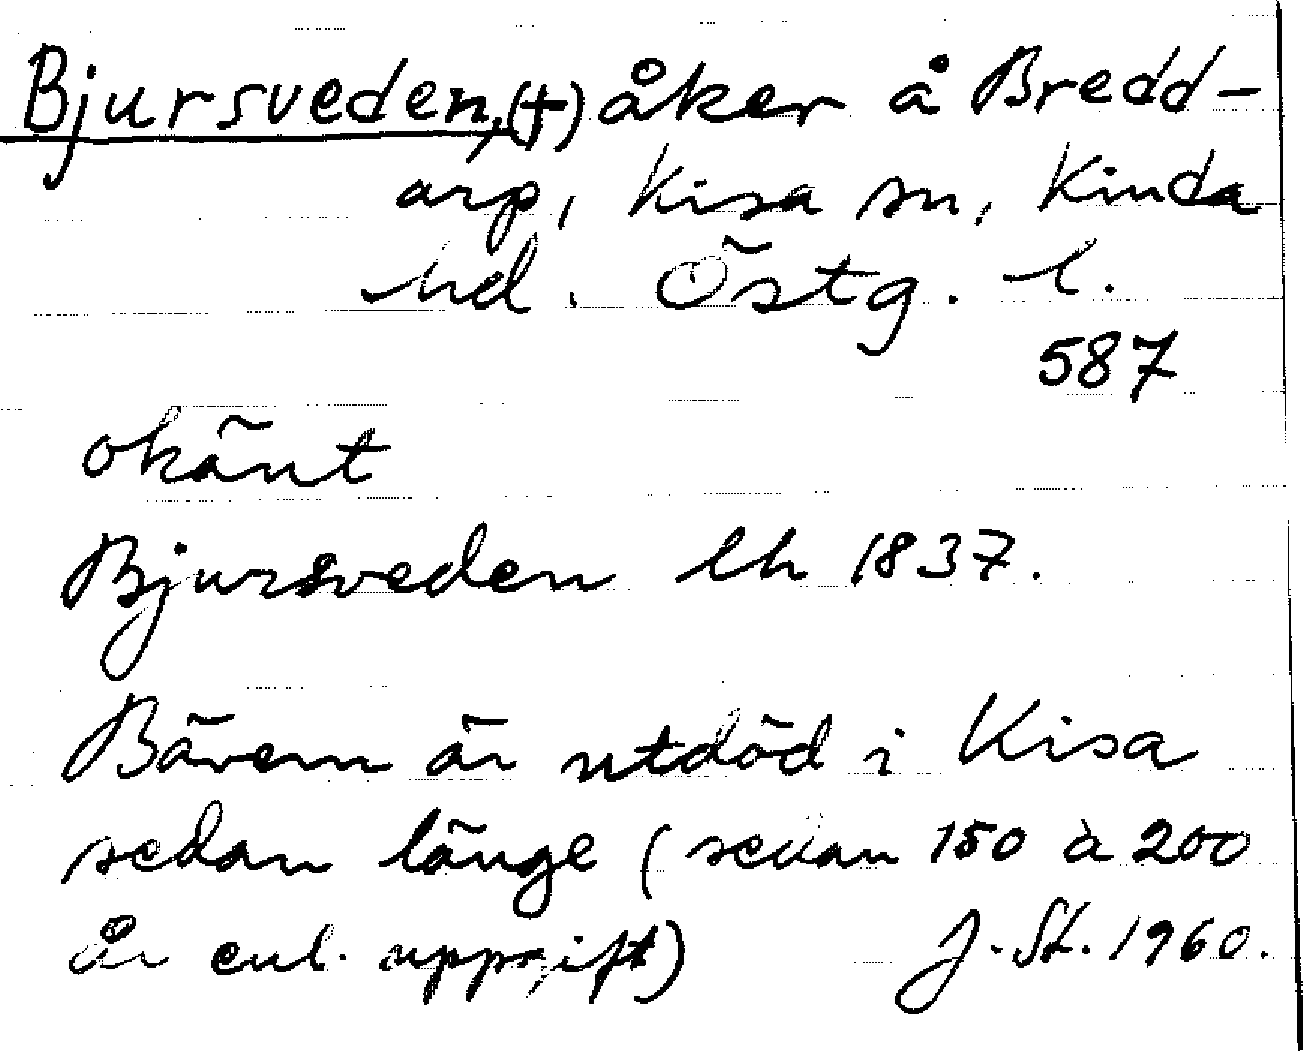 Bjursveden, (†) åker å Bredd-
arp, Kisa sn, Kinda
hd. Östg. l.
587
okänt
Bjursveden lh 1837.
Bävern är utdöd i Kisa
sedan länge (sedan 150 à 200
år enl. uppgift) J. St. 1960.